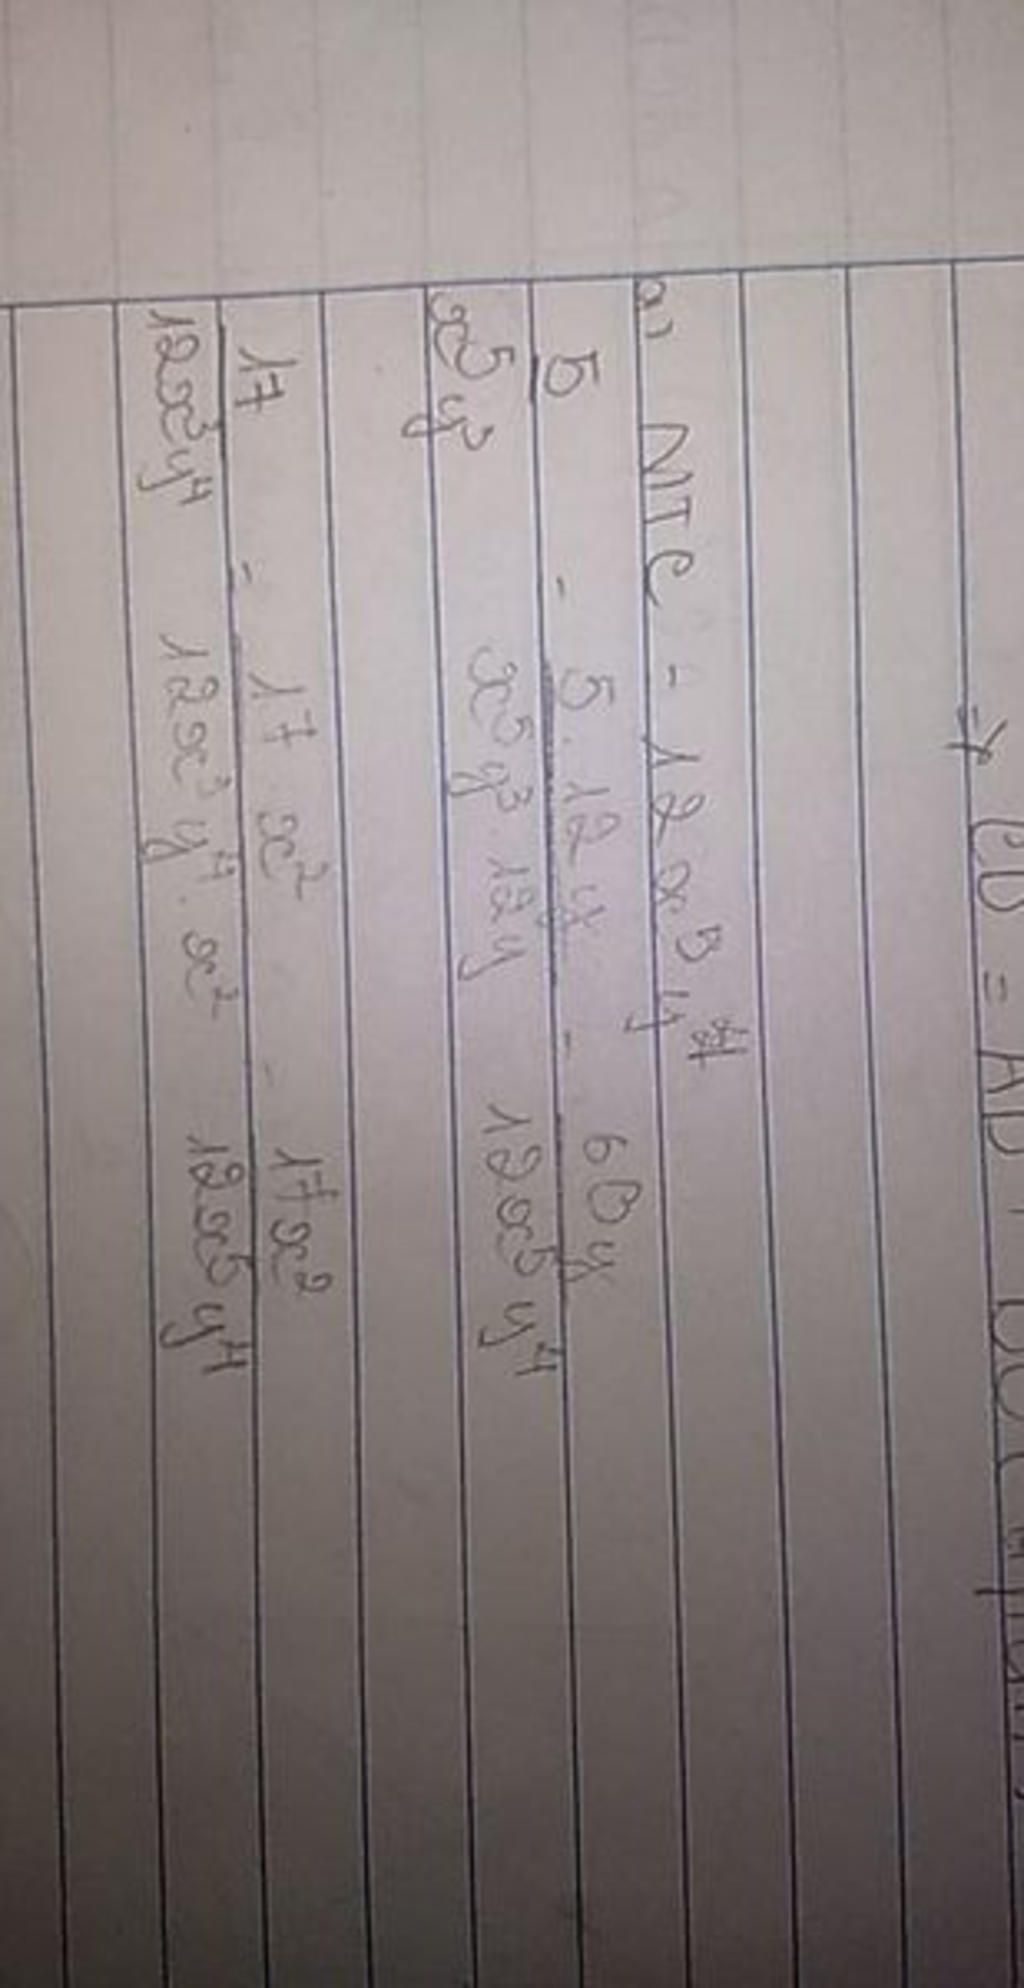 → CD = AD + DC
a) MTC = 12x⁵y⁴
5/x⁵y³ = 5.12y/x⁵y³.12y = 60y/12x⁵y⁴
17/12x³y⁴ = 17.x²/12x³y⁴.x² = 17x²/12x⁵y⁴